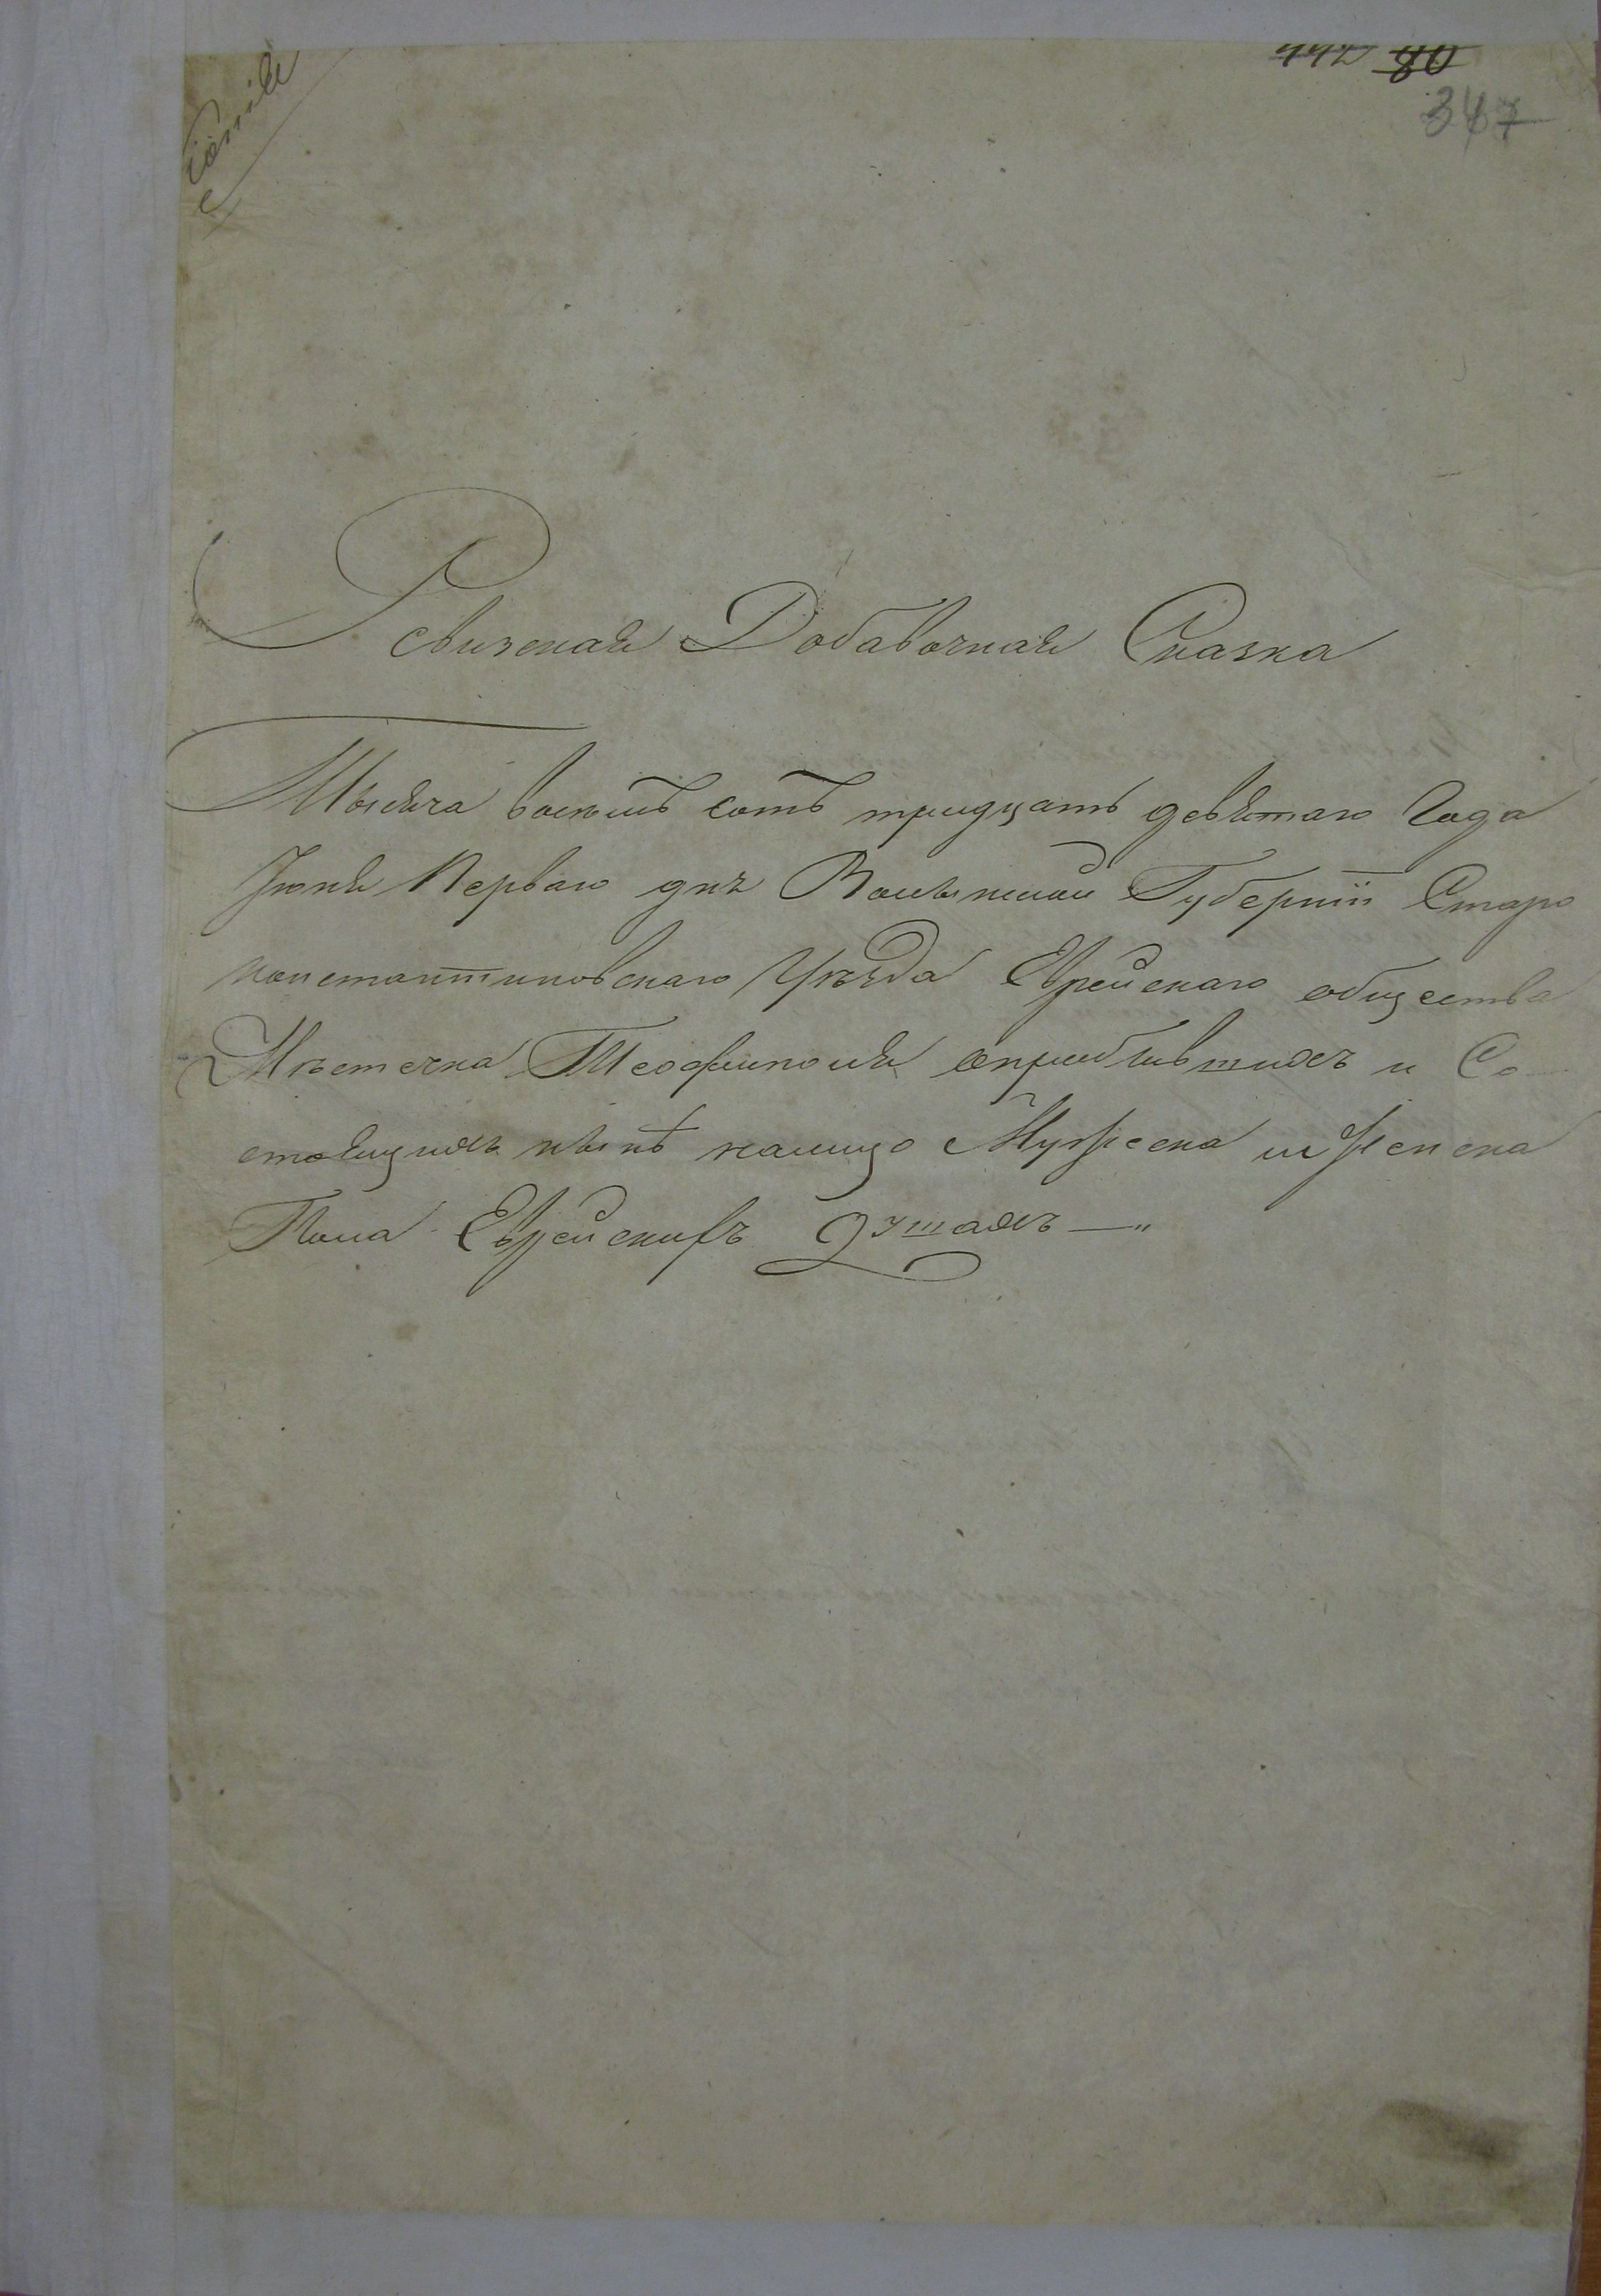 80
347
Ревизская Добавочная Сказка
Тысяча восемь сотъ тридцать девятаго Года
Июня Перваго дня Волынской Губерніи Старо
константиновскаго Уѣзда Еврейскаго общества
Мѣстечка Теофиполя о прибывшихъ и Со
стоящихъ нынѣ налицо Мужеска и Женска
Пола Еврейскихъ Душахъ